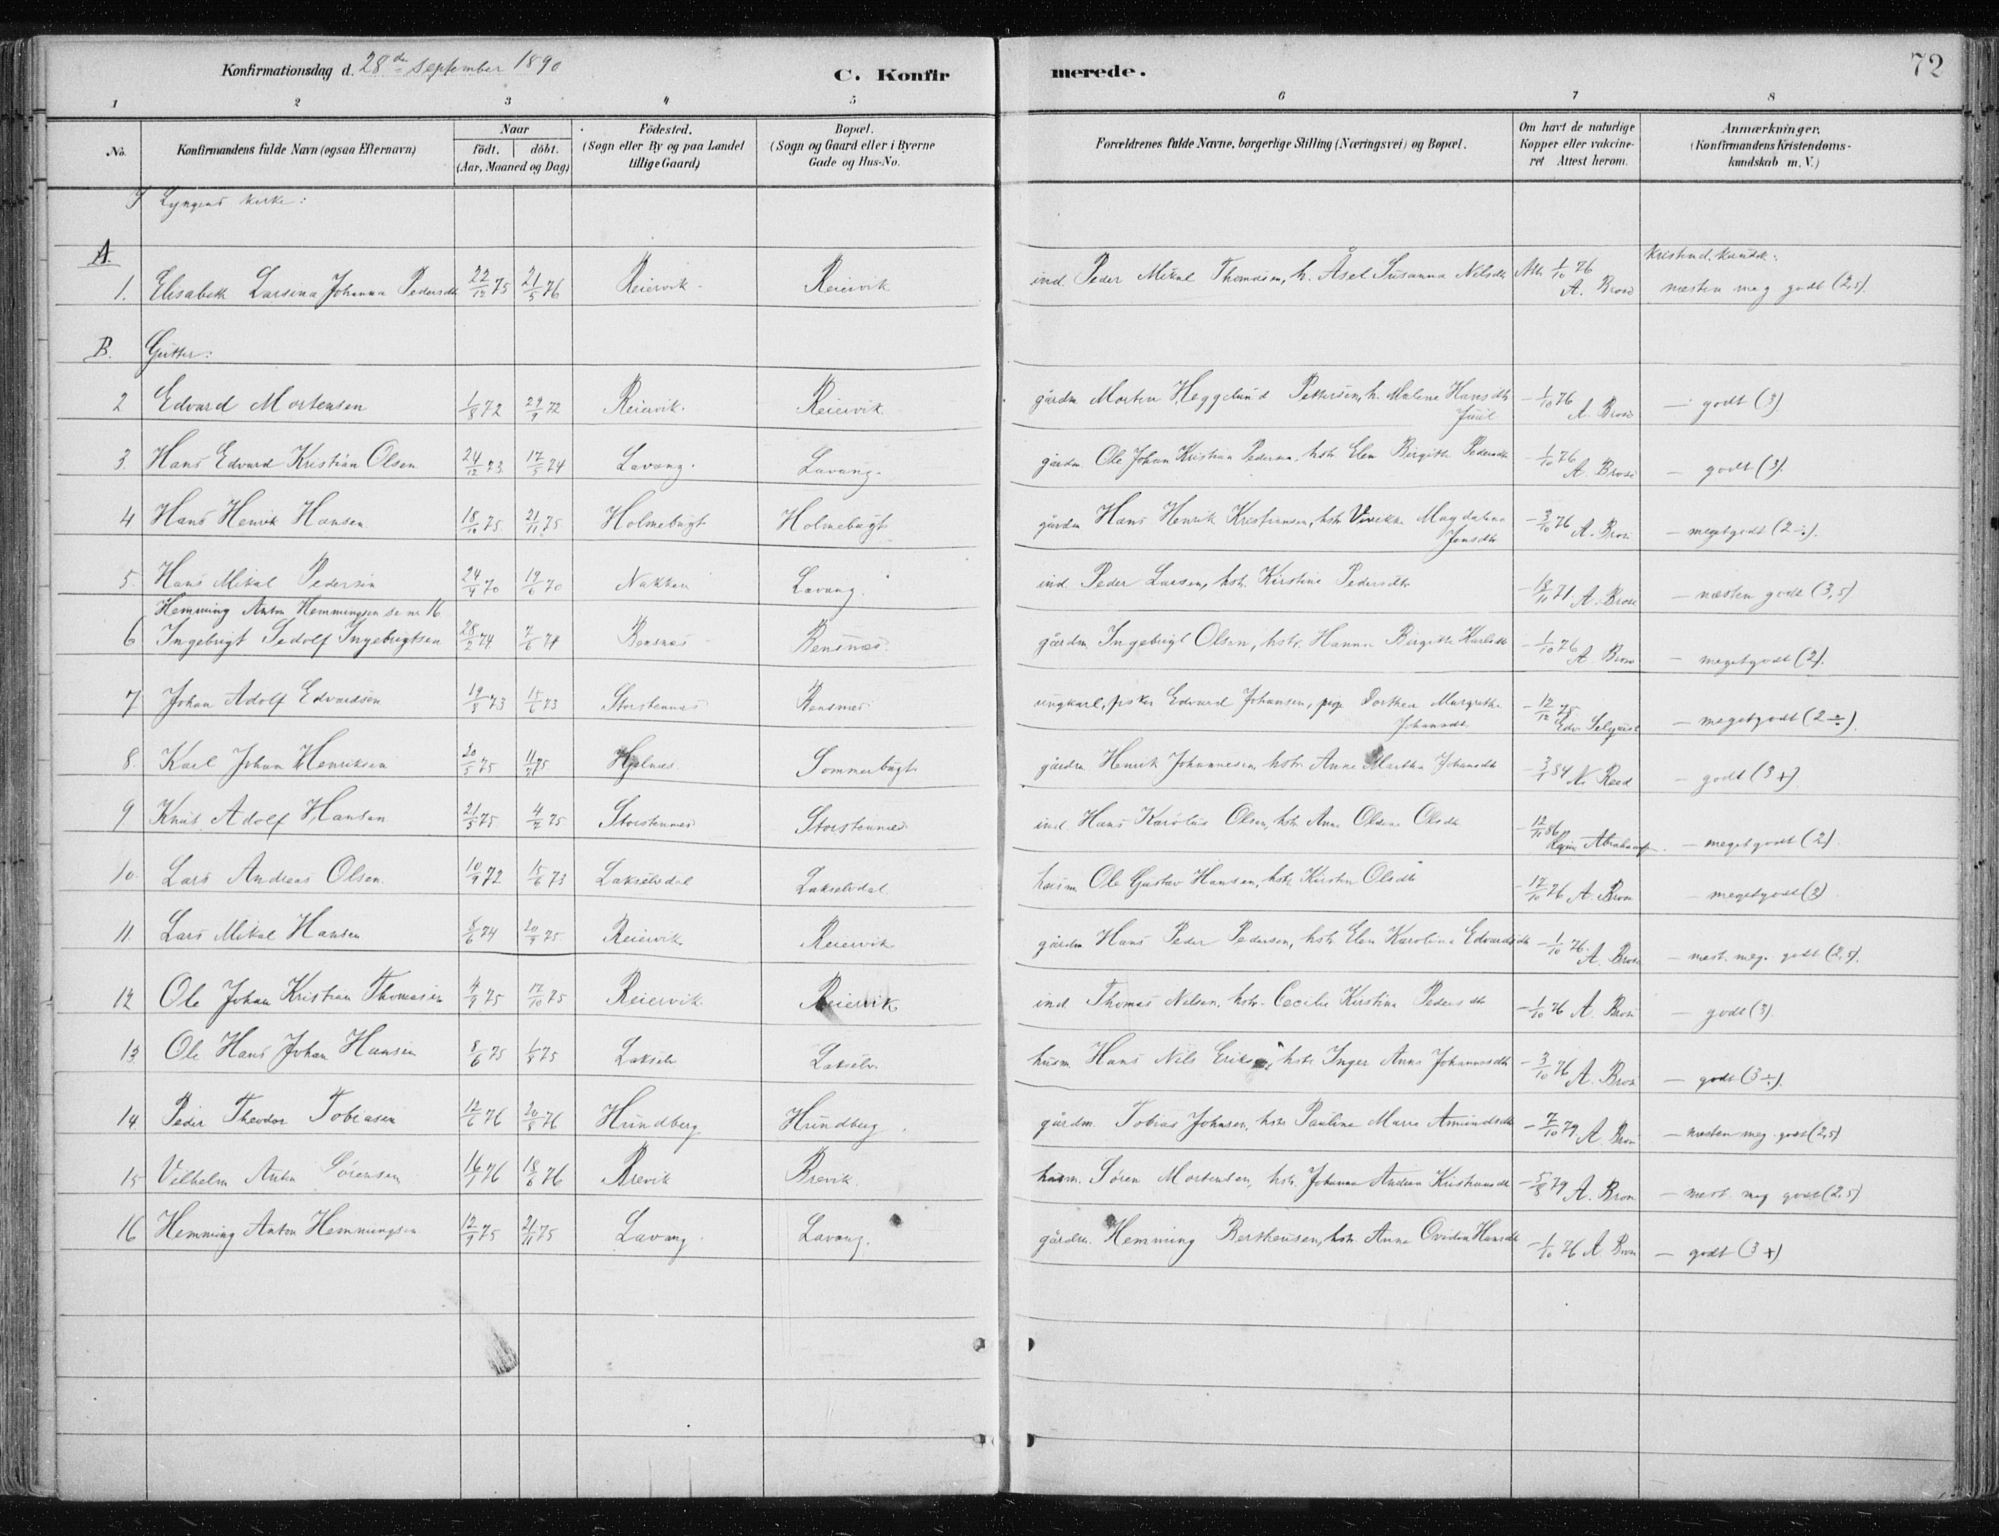 Konfirmationsdag d. 28de september 1890 C. Konfir merede. 72
1 2 3 4 5 6 7 8
No. Konfirmandens fulde Navn (ogsaa Efternavn) Naar födt. döbt. (Aar, Maaned og Dag) Födested. (Sogn eller By og paa Landet tillige Gaard) Bopæl. (Sogn og Gaard eller i Byerne Gade og Hus-No. Forældrenes fulde Navne, borgerlige Stilling (Næringsvei) og Bopæl. Om havt de naturlige Kopper eller vakcineret Attest herom. Anmærkninger. (Konfirmandens Kristendomskundskab m. V.)
I Lyngens kirke:
A.
1. Elisabeth Larsena Johanna Pedersdt 22/12 75 21/5 76 Reiervik Reiervik ind. Peder Mikal Thomasen, h. Åsel Susanna Nilsdt Att. 1/10 76 A. Brose kristend. kundsk: næsten meg godt (2,5).
B. Gutter:
2 Edvard Mortensen 1/8 72 29/9 72 Reiervik. Reiervik gårdm Morten Heggelund Pettersen, h. Malene Hansdt Juul - 1/10 76 A. Brose — godt (3)
3. Hans Edvard Kristian Olsen 24/12 73 17/5 74 Lavang. Lavang. gårdm. Ole Johan Kristian Pedersen, hstr. Elen Birgitte Pedersdt - 1/10 76 A. Brose — godt (3).
4 Hans Henrik Hansen 18/10 75 21/11 75 Holmebugt Holmebugt gårdm Hans Henrik Kristiansen, hstr. Vivekke Magdalena Jensdt - 3/10 76 A. Brose — megetgodt (2÷).
5. Hans Mikal Pedersen 24/4 70 19/6 70 Nakken Lavang. ind. Peder Larsen, hstr. Kirstine Pedersdt - 18/10 71 A. Brose — næsten godt (3,5)
Hemming Anton Hemmingsen se nr. 16
6 Ingebrigt Sedolf Ingebrigtsen 28/2 74 7/6 74 Bensnes Bensnæs. gårdm. Ingebrigt Olsen, hstr. Hanna Birgitte Karlsdt - 1/10 76 A. Brose — megetgodt (2).
7 Johan Adolf Edvardsen 15/6 73 Storstennes Bensnæs ungkarl, fisker Edvard Johansen, pige Dorthea Margrethe Johansdt. - 12/12 75 — megetgodt (2÷).
8. Karl Johan Henriksen 20/5 75 Hjelnæs. Sommerbugt gårdm. Henrik Johannesen, hstr. Anne Martha Johansdt - 3/1 84 N. Reed — godt (3+)
9 Knut Adolf Hansen 21/5 75 4/7 75 Storstennes Storstennæs ind. Hans Karolus Olsen, hstr. Anne Oldine Olsdt - 12/11 86 — megetgodt (2).
10. Lars Andreas Olsen. 10/9 72 15/6 73 Lakselvdal Lakselvdal husm. Ole Gustav Hansen, hstr. Kirsten Olsdt - 17/10 76 A. Brose — megetgodt (2)
11. Lars Mikal Hansen 74 20/9 75. Reiervik Reiervik gårdm Hans Peder Pedersen, hstr. Elen Karolina Edvardsdt - 1/10 76. A. Brose — næst. meg. godt (2,5).
12 Ole Johan Kristian Thomasen 4/9 75 17/10 75 Reiervik. Reiervik ind. Thomas Nilsen, hstr. Cecilie Kirstina Pedersdt - 1/10 76 A. Brose — godt (3)
13. Ole Hans Johan Hansen 8/6 75 1/8 75 Lakselv Lakselv. husm. Hans Nils Eriksen, hstr. Inger Anna Johannesdt - 3/10 76 A. Brose — godt (3÷).
14 Peder Theodor Tobiasen 12/6 76 20/8 76 Hundberg Hundberg gårdm. Tobias Johnsen, hstr. Pauline Marie Amundsdt - 7/10 79 A. Brose — næsten meg. godt (2,5)
15 Vilhelm Anton Sörensen 16/1 76 18/6 76 Brevik Brevik. husm. Sören Mortensen, hstr. Johanna Andrea Kristiansdt - 5/8 79 A. Brose — næst. meg godt (2,5)
16 Hemming Anton Hemmingsen 12/9 75 21/11 75 Lavang. Lavang. gårdm. Hemming Bertheusen, hstr. Anne Ovidia Hansdt - 1/10 76 A. Brose — godt (3+)